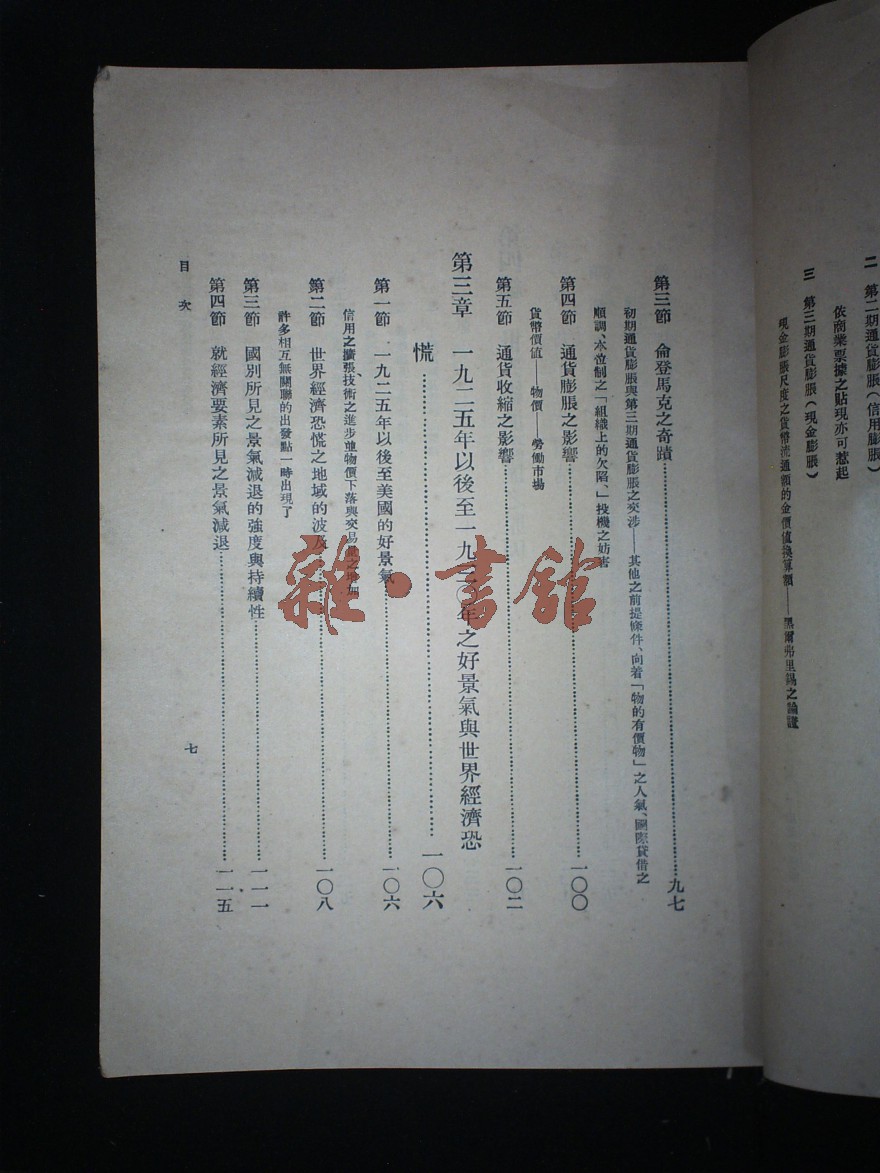 二　第二期通貨膨脹（信用膨脹）
依商業票據之貼現亦可惹起
三　第三期通貨膨脹（現金膨脹）
現金膨脹尺度之貨幣流通額的金價值換算額——黑爾弗里錫之論證
第三節　侖登馬克之奇蹟……………………九七
初期通貨膨脹與第三期通貨膨脹之交涉——其他之前提條件、向着「物的有價物」之人氣、國際貸借之
順調、本位制之「組織上的欠陷、」投機之妨害
第四節　通貨膨脹之影響……………………一〇〇
貨幣價值——物價——勞働市場
第五節　通貨收縮之影響……………………一〇二
第三章　一九二五年以後至一九三〇年之好景氣與世界經濟恐
慌……………………一〇六
第一節　一九二五年以後至美國的好景氣……………………一〇六
信用之擴張技術之進步並物價下落與交易量之增加
第二節　世界經濟恐慌之地域的波及……………………一〇八
許多相互無關聯的出發點一時出現了
第三節　國別所見之景氣減退的強度與持續性……………………一一一
第四節　就經濟要素所見之景氣減退……………………一一五
目次
七
雜·書館